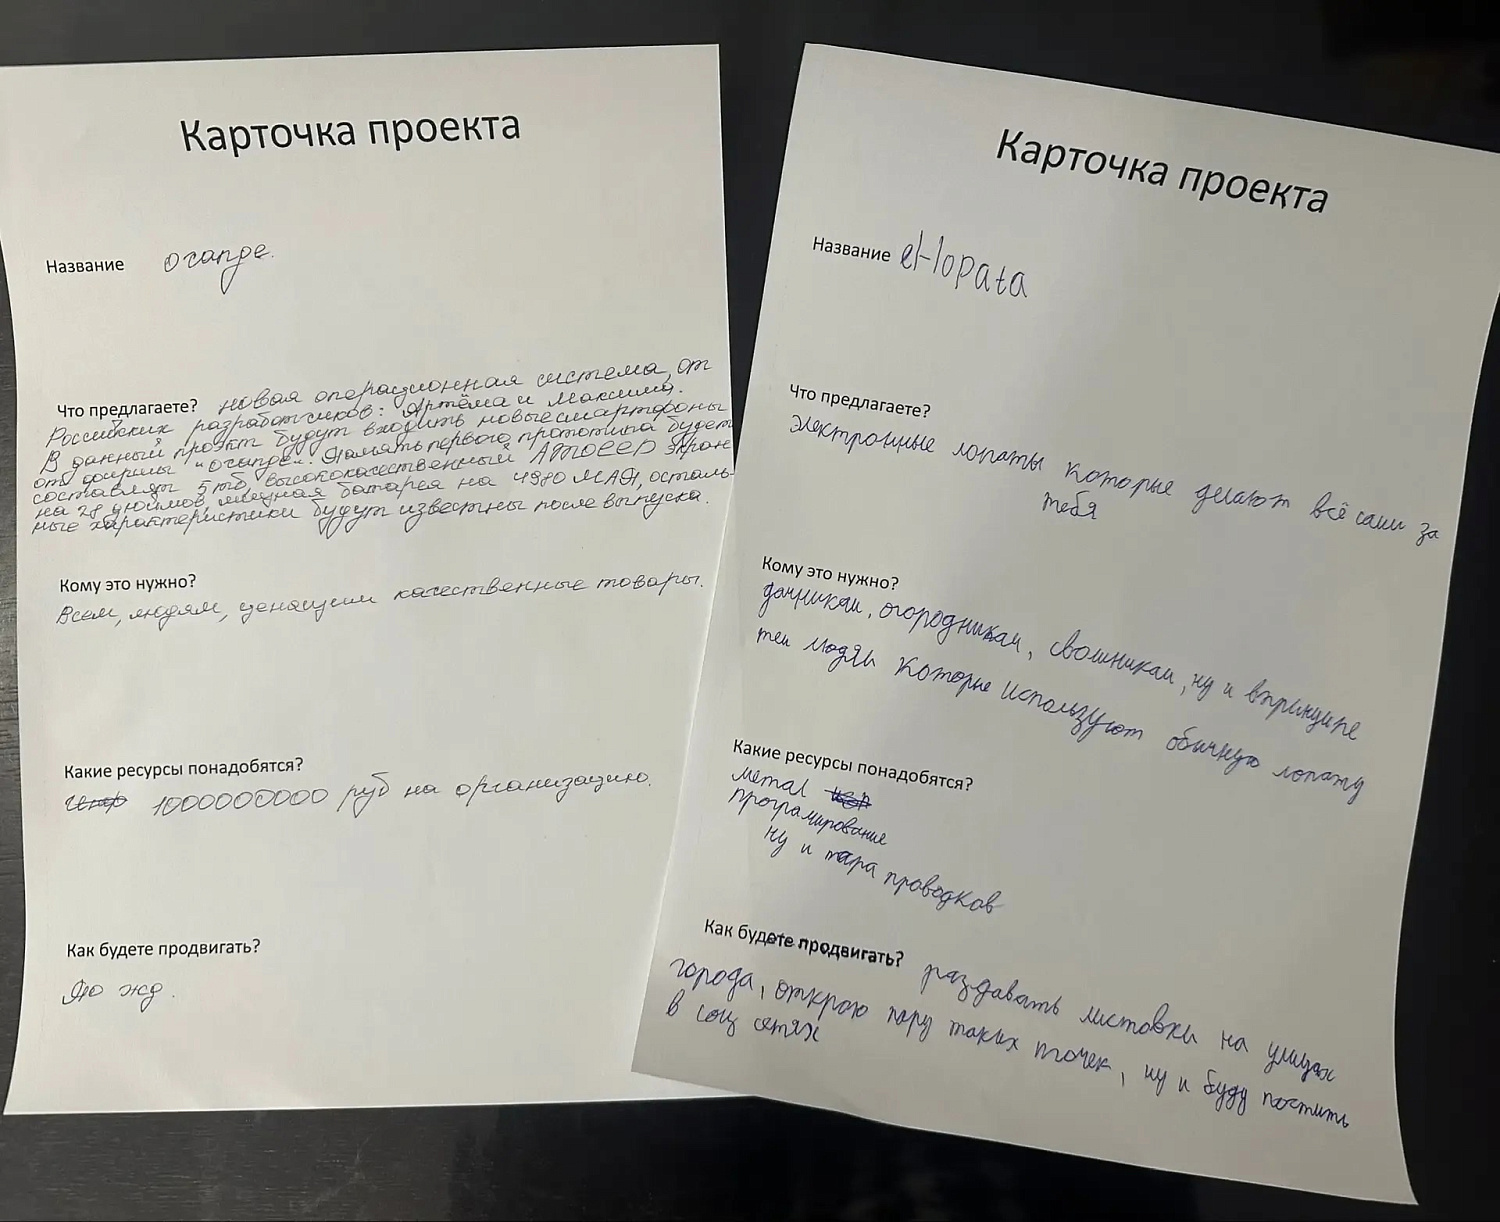 Карточка проекта
Название огапде.
Что предлагаете? новая операционная система, от
Российских разработчиков: Артёма и Максима.
В данный проэкт будут входить новые смартфоны
от фирмы "огапде". Память первого прототипа будет
составлят 5 тб, высококачественный экран
на 28 дюймов, мощная батарея на 4980 МАЯ, осталь-
ные характеристики будут известны после выпуска.
Кому это нужно?
Всем, людям, ценящим качественные товары.
Какие ресурсы понадобятся?
1000000000 руб на организацию.
Как будете продвигать?
По жд.
Карточка проекта
Название el-lopata
Что предлагаете?
Электронные лопаты которые делают всё сами за
тебя
Кому это нужно?
дачникам, огородникам, ну и впринципе
тем людям которые используют обычную лопату
Какие ресурсы понадобятся?
метal
програмирование
ну и пара проводков
Как будете продвигать? раздавать листовки на улицах
города, открою пару таких точек, ну и буду постить
в соц сетях